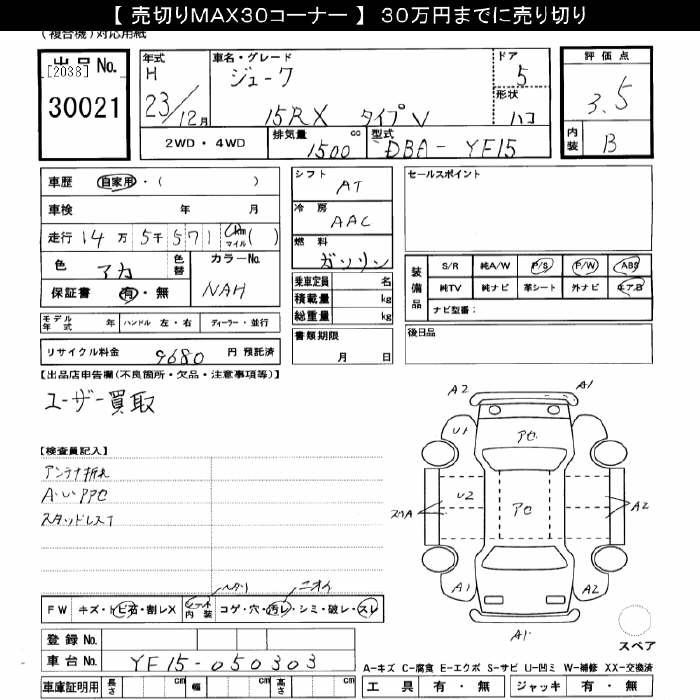 【 売切りMAX30コーナー 】 30万円までに売り切り
(複合機)対応用紙
出品 No.
[2038]
30021
年式
H
23/12月
車名・グレード
ジューク
15RX タイプV
ドア
5
形状
ハコ
評価点
3.5
内装
B
2WD・4WD
排気量 cc
1500
型式
DBA-YF15
車歴 自家用・( )
車検 年 月
走行 14万 5千 571 Km マイル ( )
色 アカ
色替
カラーNo.
NAH
保証書 有・無
モデル年式 年 ハンドル 左・右 ディーラー・並行
リサイクル料金 9680 円 預託済
シフト
AT
冷房
AAC
燃料
ガソリン
乗車定員 名
積載量 kg
総重量 kg
書類期限
月 日
セールスポイント
装備品
S/R 純A/W P/S P/W ABS
純TV 純ナビ 革シート 外ナビ エアB
ナビ型番：
後日品
【出品店申告欄(不良箇所・欠品・注意事項等)】
ユーザー買取
【検査員記入】
アンテナ折れ
A・U・アセ
スタッドレスT
A2 A1
U1 アセ
U2 アセ
スリA A2
A1 A2
A1
スペア
ヘタリ ニオイ
FW キズ・トビ石・割レX シート内装 コゲ・穴・汚レ・シミ・破レ・スレ
登録 No.
車台 No. YF15-050303
車庫証明用 長さ cm 幅 cm 高さ cm
A−キズ C−腐食 E−エクボ S−サビ U−凹ミ W−補修 XX−交換済
工具 有・無 ジャッキ 有・無